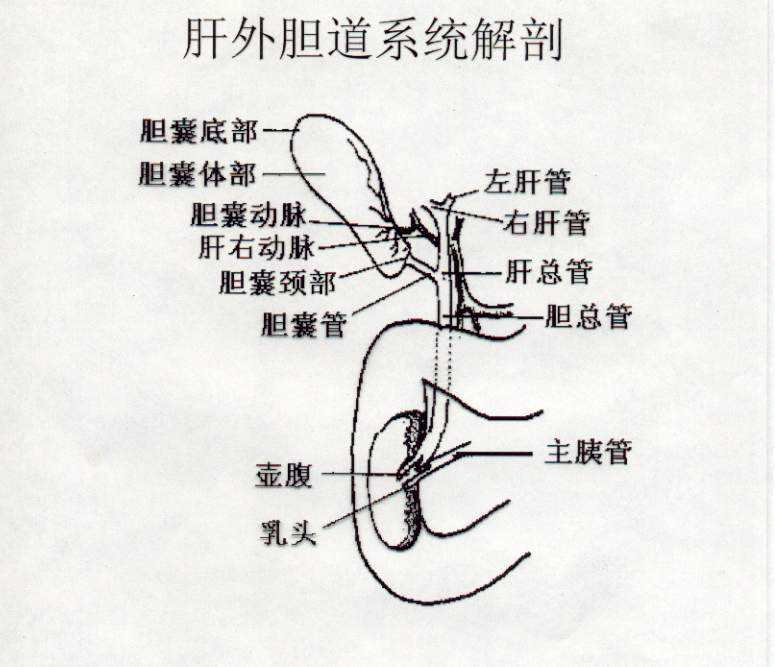 肝外胆道系统解剖
胆囊底部
胆囊体部
左肝管
胆囊动脉
右肝管
肝右动脉
肝总管
胆囊颈部
胆总管
胆囊管
主胰管
壶腹
乳头